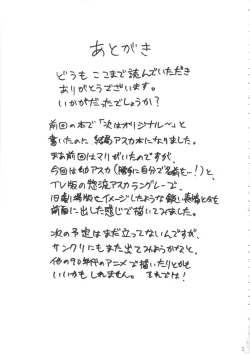 あとがき
どうも ここまで読んでいただき
ありがとうございます。
いかがだったでしょうか?
前回の本で「次はオリジナル〜」と
書いたのに 結局アスカ本になりました。
まぁ前回はマリがいたのですが、
今回は幼アスカ(勝手に自分で名前を…!)と、
TV版の惣流アスカラングレーで、
旧劇場版をイメージしたような鋭い表情とかを
前面に出した感じで描いてみました。
次の予定はまだ立ってないんですが、
サンクリにもまた出てみようかなと、
他の90年代のアニメで描いたりとかも
いいかもしれません。 それでは!